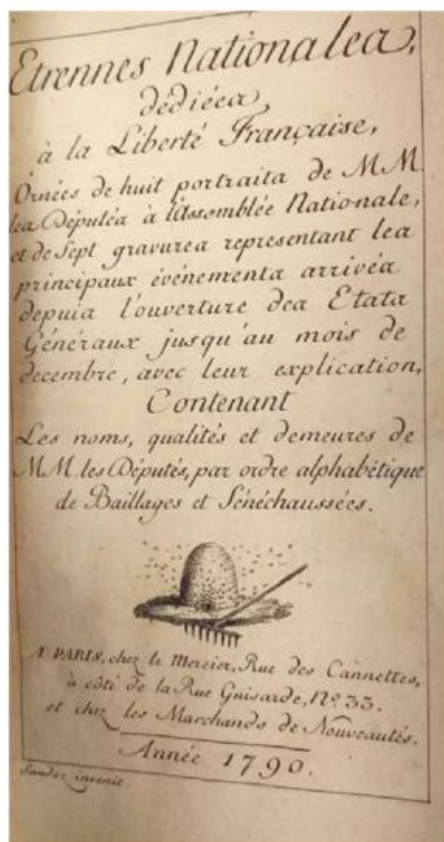 Etrennes Nationales,
dédiées,
à la Liberté Française,
Ornées de huit portraits de MM.
les Députés à l'Assemblée Nationale,
et de Sept gravures representant les
principaux événements arrivés
depuis l'ouverture des Etats
Généraux jusqu'au mois de
decembre, avec leur explication,
Contenant
Les noms, qualités et demeures de
MM. les Députés, par ordre alphabétique
de Baillages et Sénéchaussées.
A PARIS, chez le Mercier, Rue des Cannettes,
à côté de la Rue Guisarde, N.º 33.
et chez les Marchands de Nouveautés.
Année 1790.
invenit.